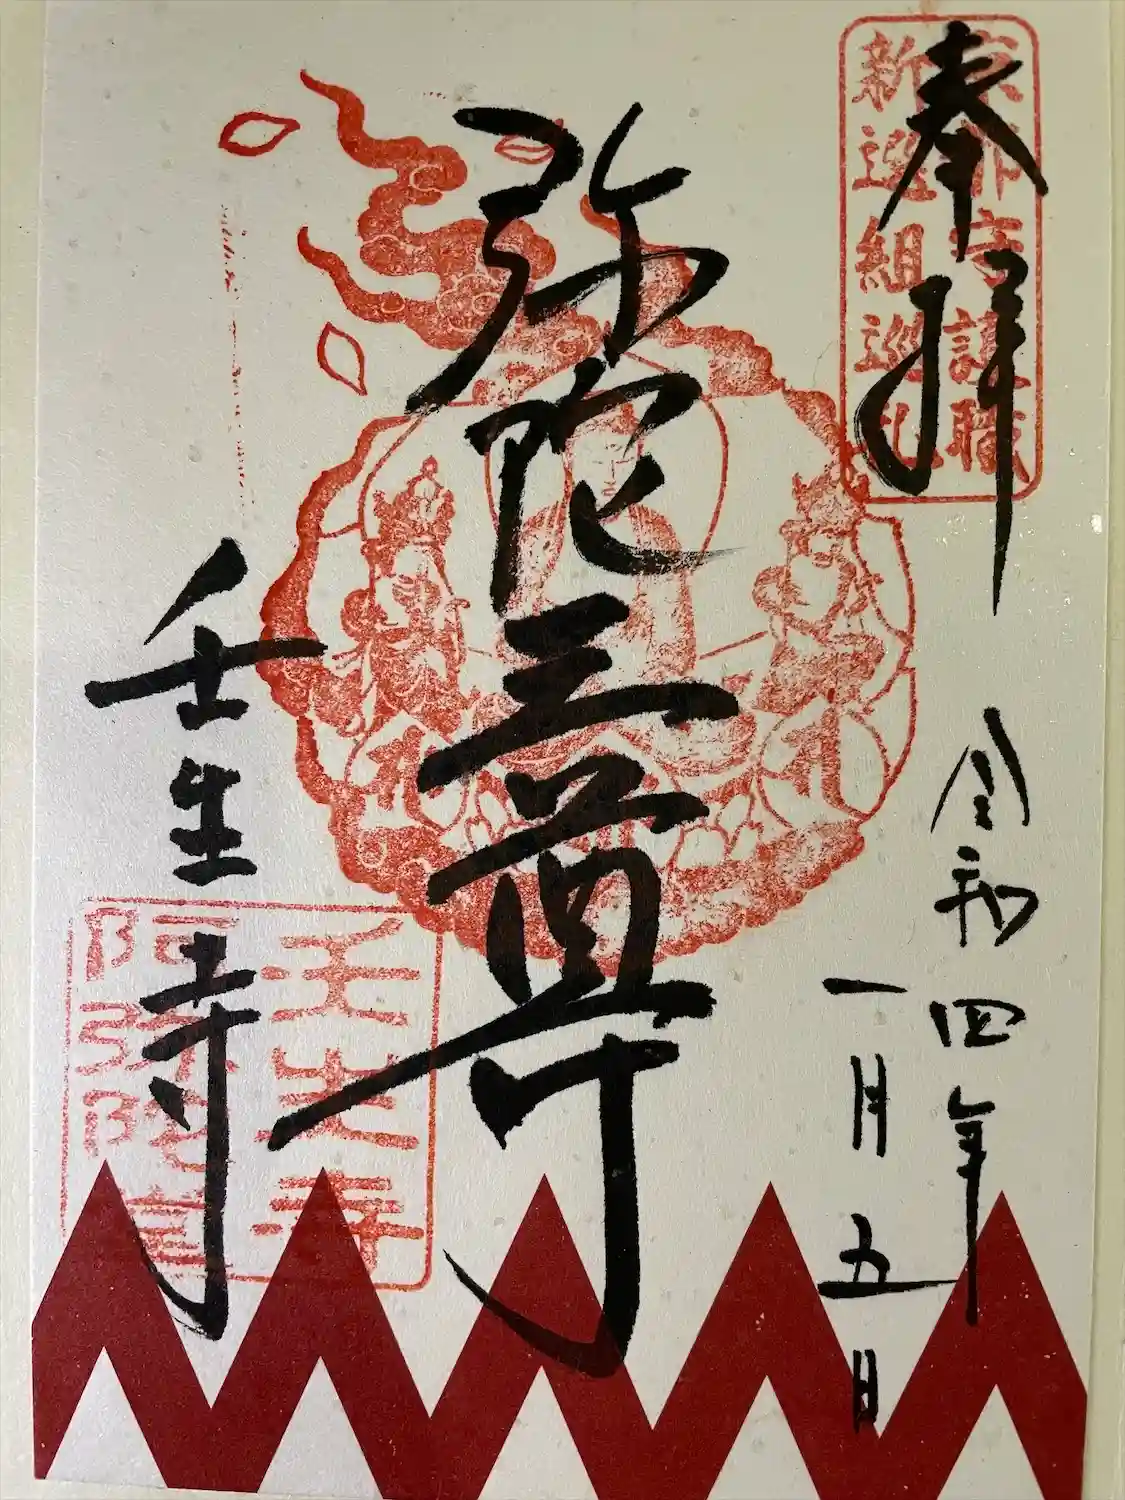 奉拝
京都守護職
新選組巡礼
令和四年
一月五日
弥陀三尊
壬生寺
壬生寺
阿弥陀堂